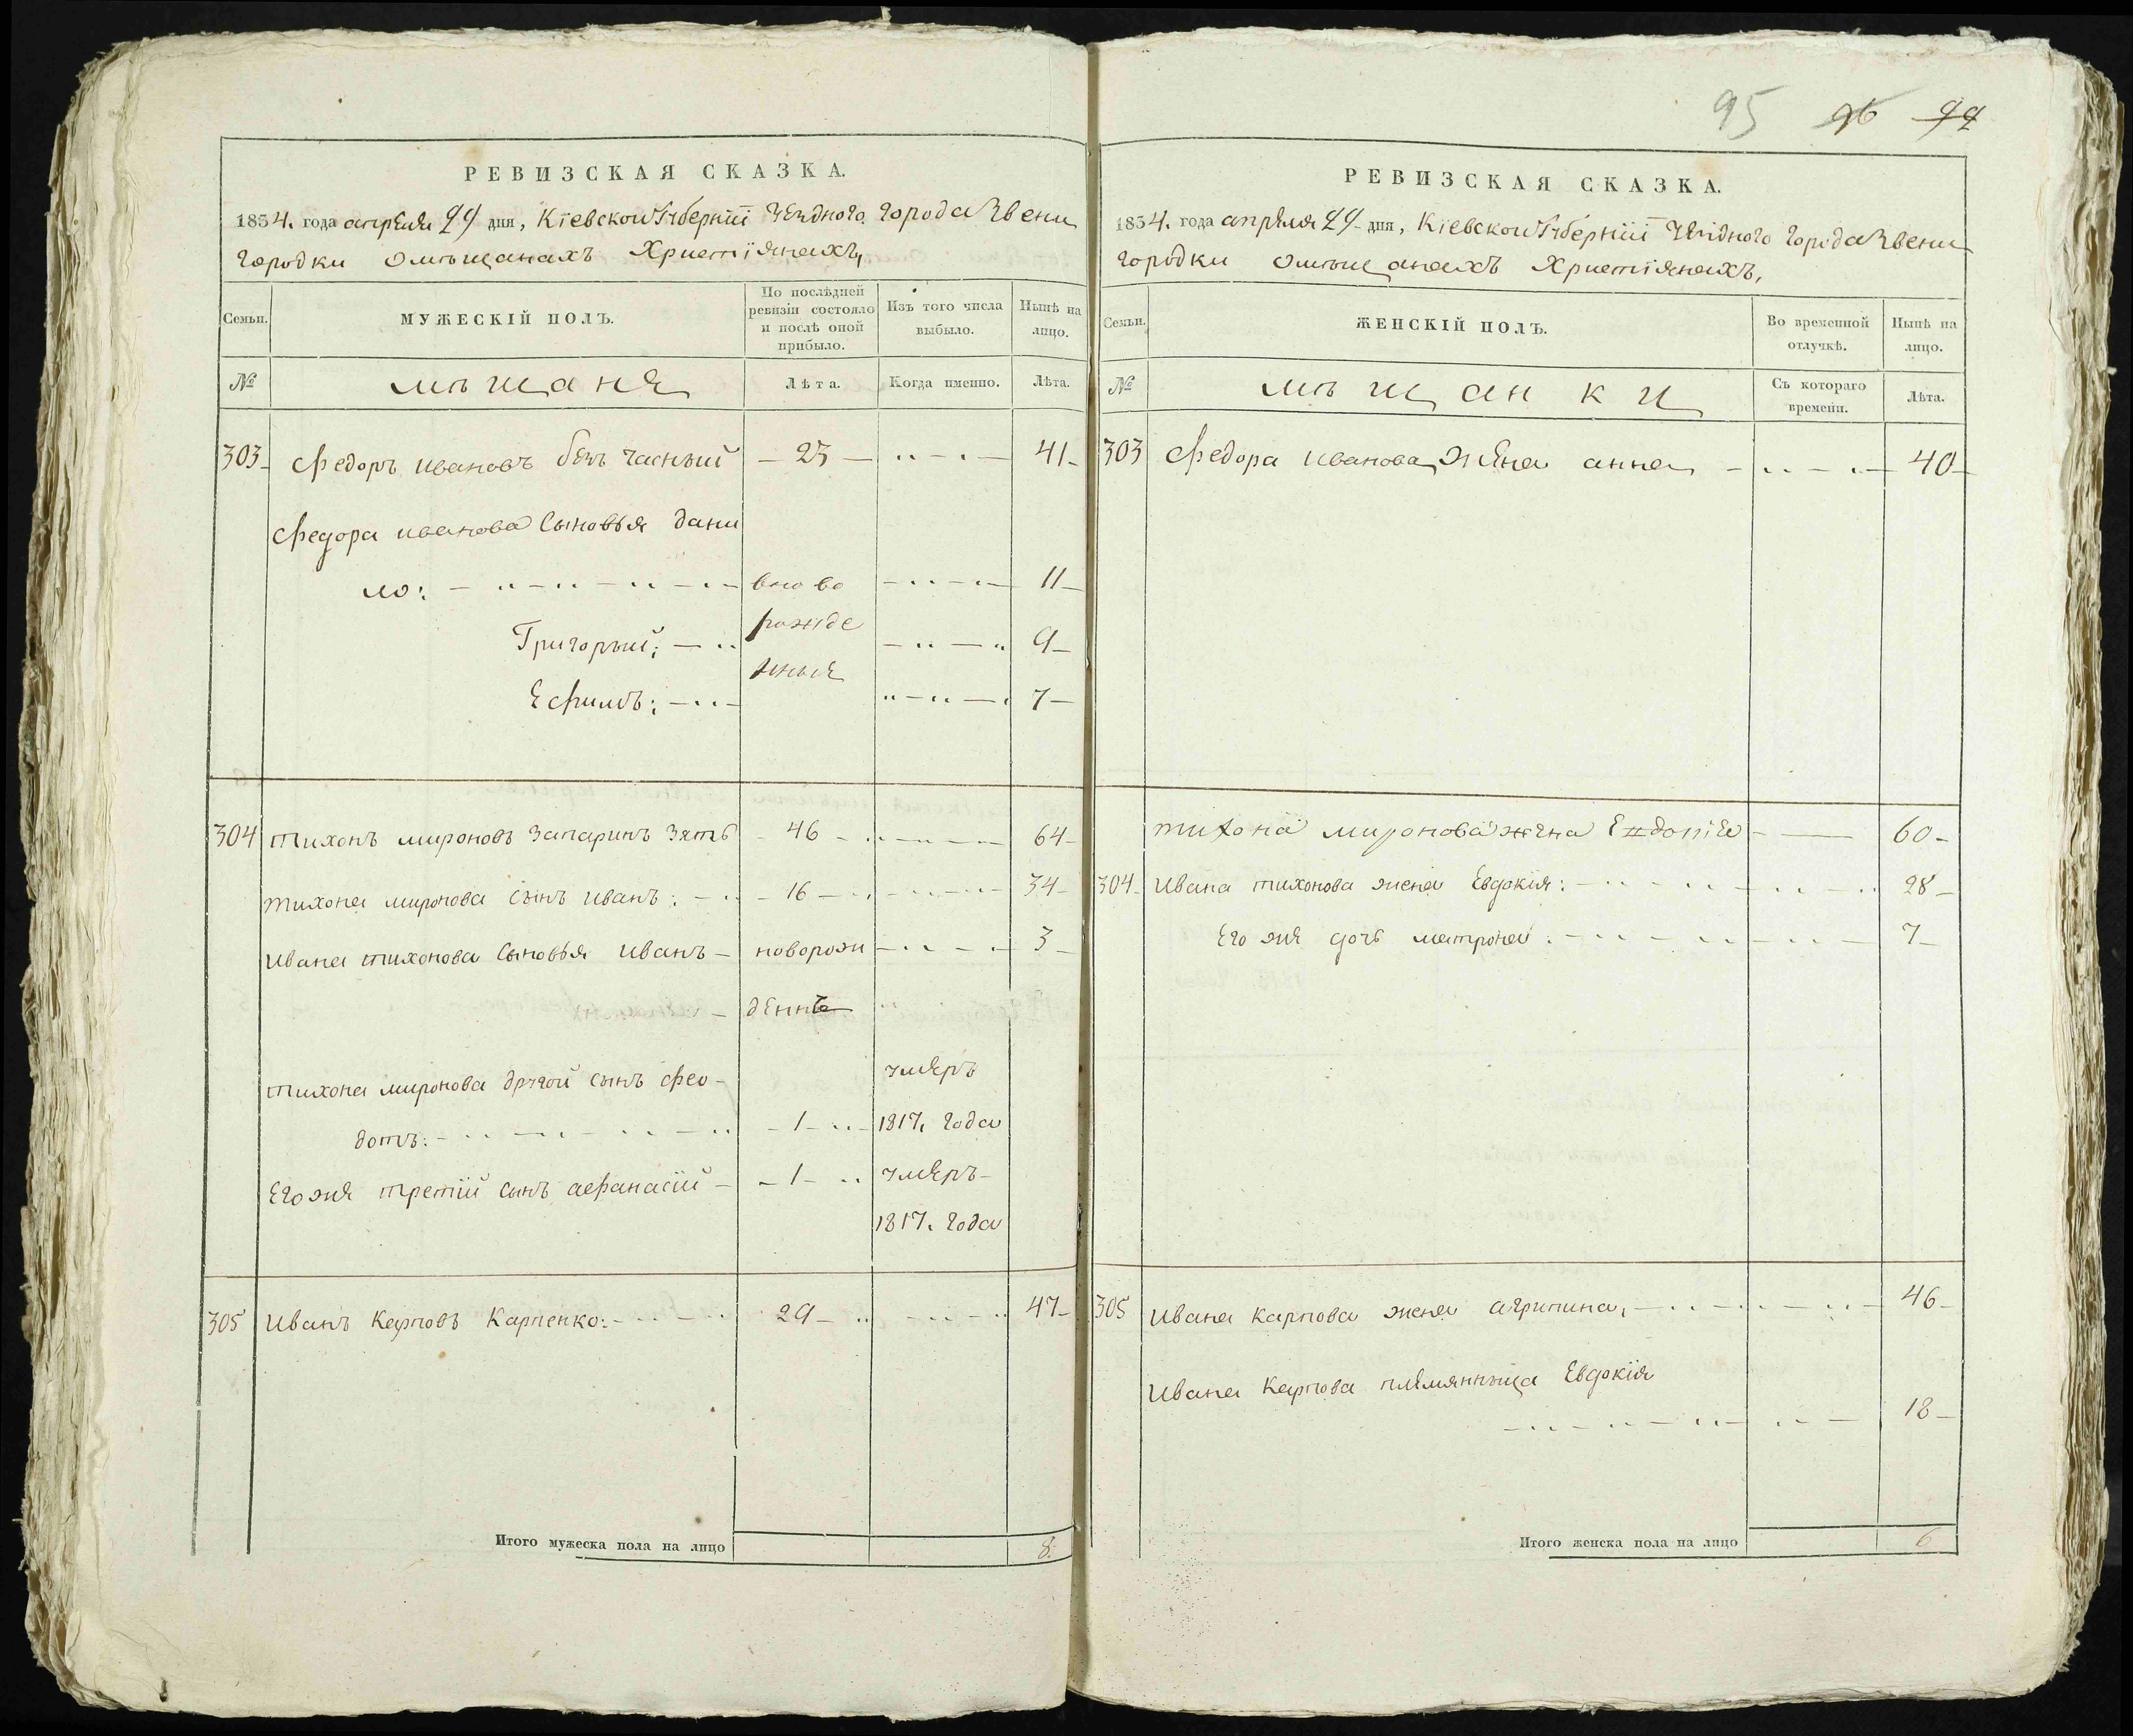 95 96 99
РЕВИЗСКАЯ СКАЗКА.
1834. года апреля 29 дня, Кіевской Губерніи Уезднаго города Звени
городки омъщанахъ Христіянахъ,
Семьи.
МУЖЕСКІЙ ПОЛЪ.
По послѣдней ревизіи состояло и послѣ оной прибыло.
Изъ того числа выбыло.
Нынѣ на лицо.
№
мъщане
Лѣта.
Когда именно.
Лѣта.
303 Федоръ ивановъ безчасный 23 41
Федора иванова Сыновья дани
ло: вново 11
Григорый; рожде 9
Ефимъ: нные 7
304 тихонъ мироновъ Запаринъ Зять 46 64
тихона миронова Сынъ иванъ: 16 34
ивана тихонова Сыновья иванъ новорож 3
денны
тихона миронова другой сынъ фео- умеръ
дотъ: 1 1817. года
Его же третій сынъ афанасій 1 умеръ
1817. года
305 иванъ Карповъ Карпенко: 29 47
Итого мужеска пола на лицо 8.
РЕВИЗСКАЯ СКАЗКА.
1834. года апреля 29 дня, Кіевской Губерніи Уезднаго города Звени
городки омъщанахъ Христіянахъ,
Семьи.
ЖЕНСКІЙ ПОЛЪ.
Во временной отлучкѣ.
Нынѣ на лицо.
№
мъщанки
Съ котораго времени.
Лѣта.
303 Федора иванова жена анна 40
тихона миронова жена 60
304 ивана тихонова жена Евдокія: 28
Его же дочь матрона: 7
305 ивана карпова жена агрипина, 46
ивана карпова племянныца Евдокія
18
Итого женска пола на лицо 6